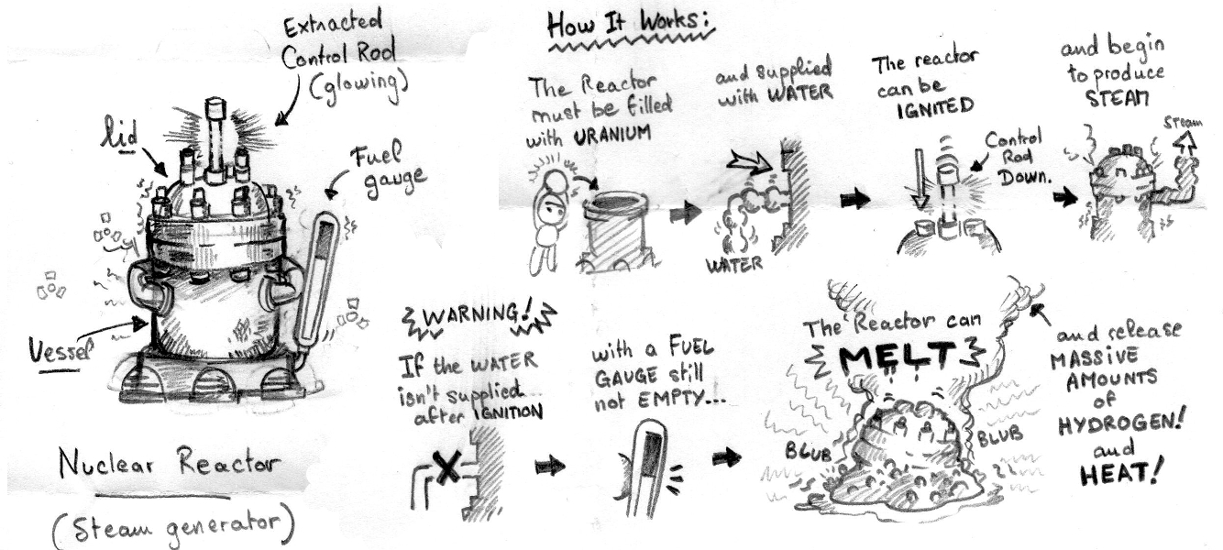 Extracted
Control Rod
(glowing)
lid
Fuel
gauge
Vessel
Nuclear Reactor
(Steam generator)
How It Works:
The Reactor
must be filled
with URANIUM
and supplied
with WATER
WATER
The reactor
can be
IGNITED
Control
Rod
DOWN.
and begin
to produce
STEAM
Steam
WARNING!
If the WATER
isn't supplied...
after IGNITION
with a FUEL
GAUGE still
not EMPTY...
The Reactor can
MELT
BLUB
BLUB
and release
MASSIVE
AMOUNTS
of
HYDROGEN!
and
HEAT!